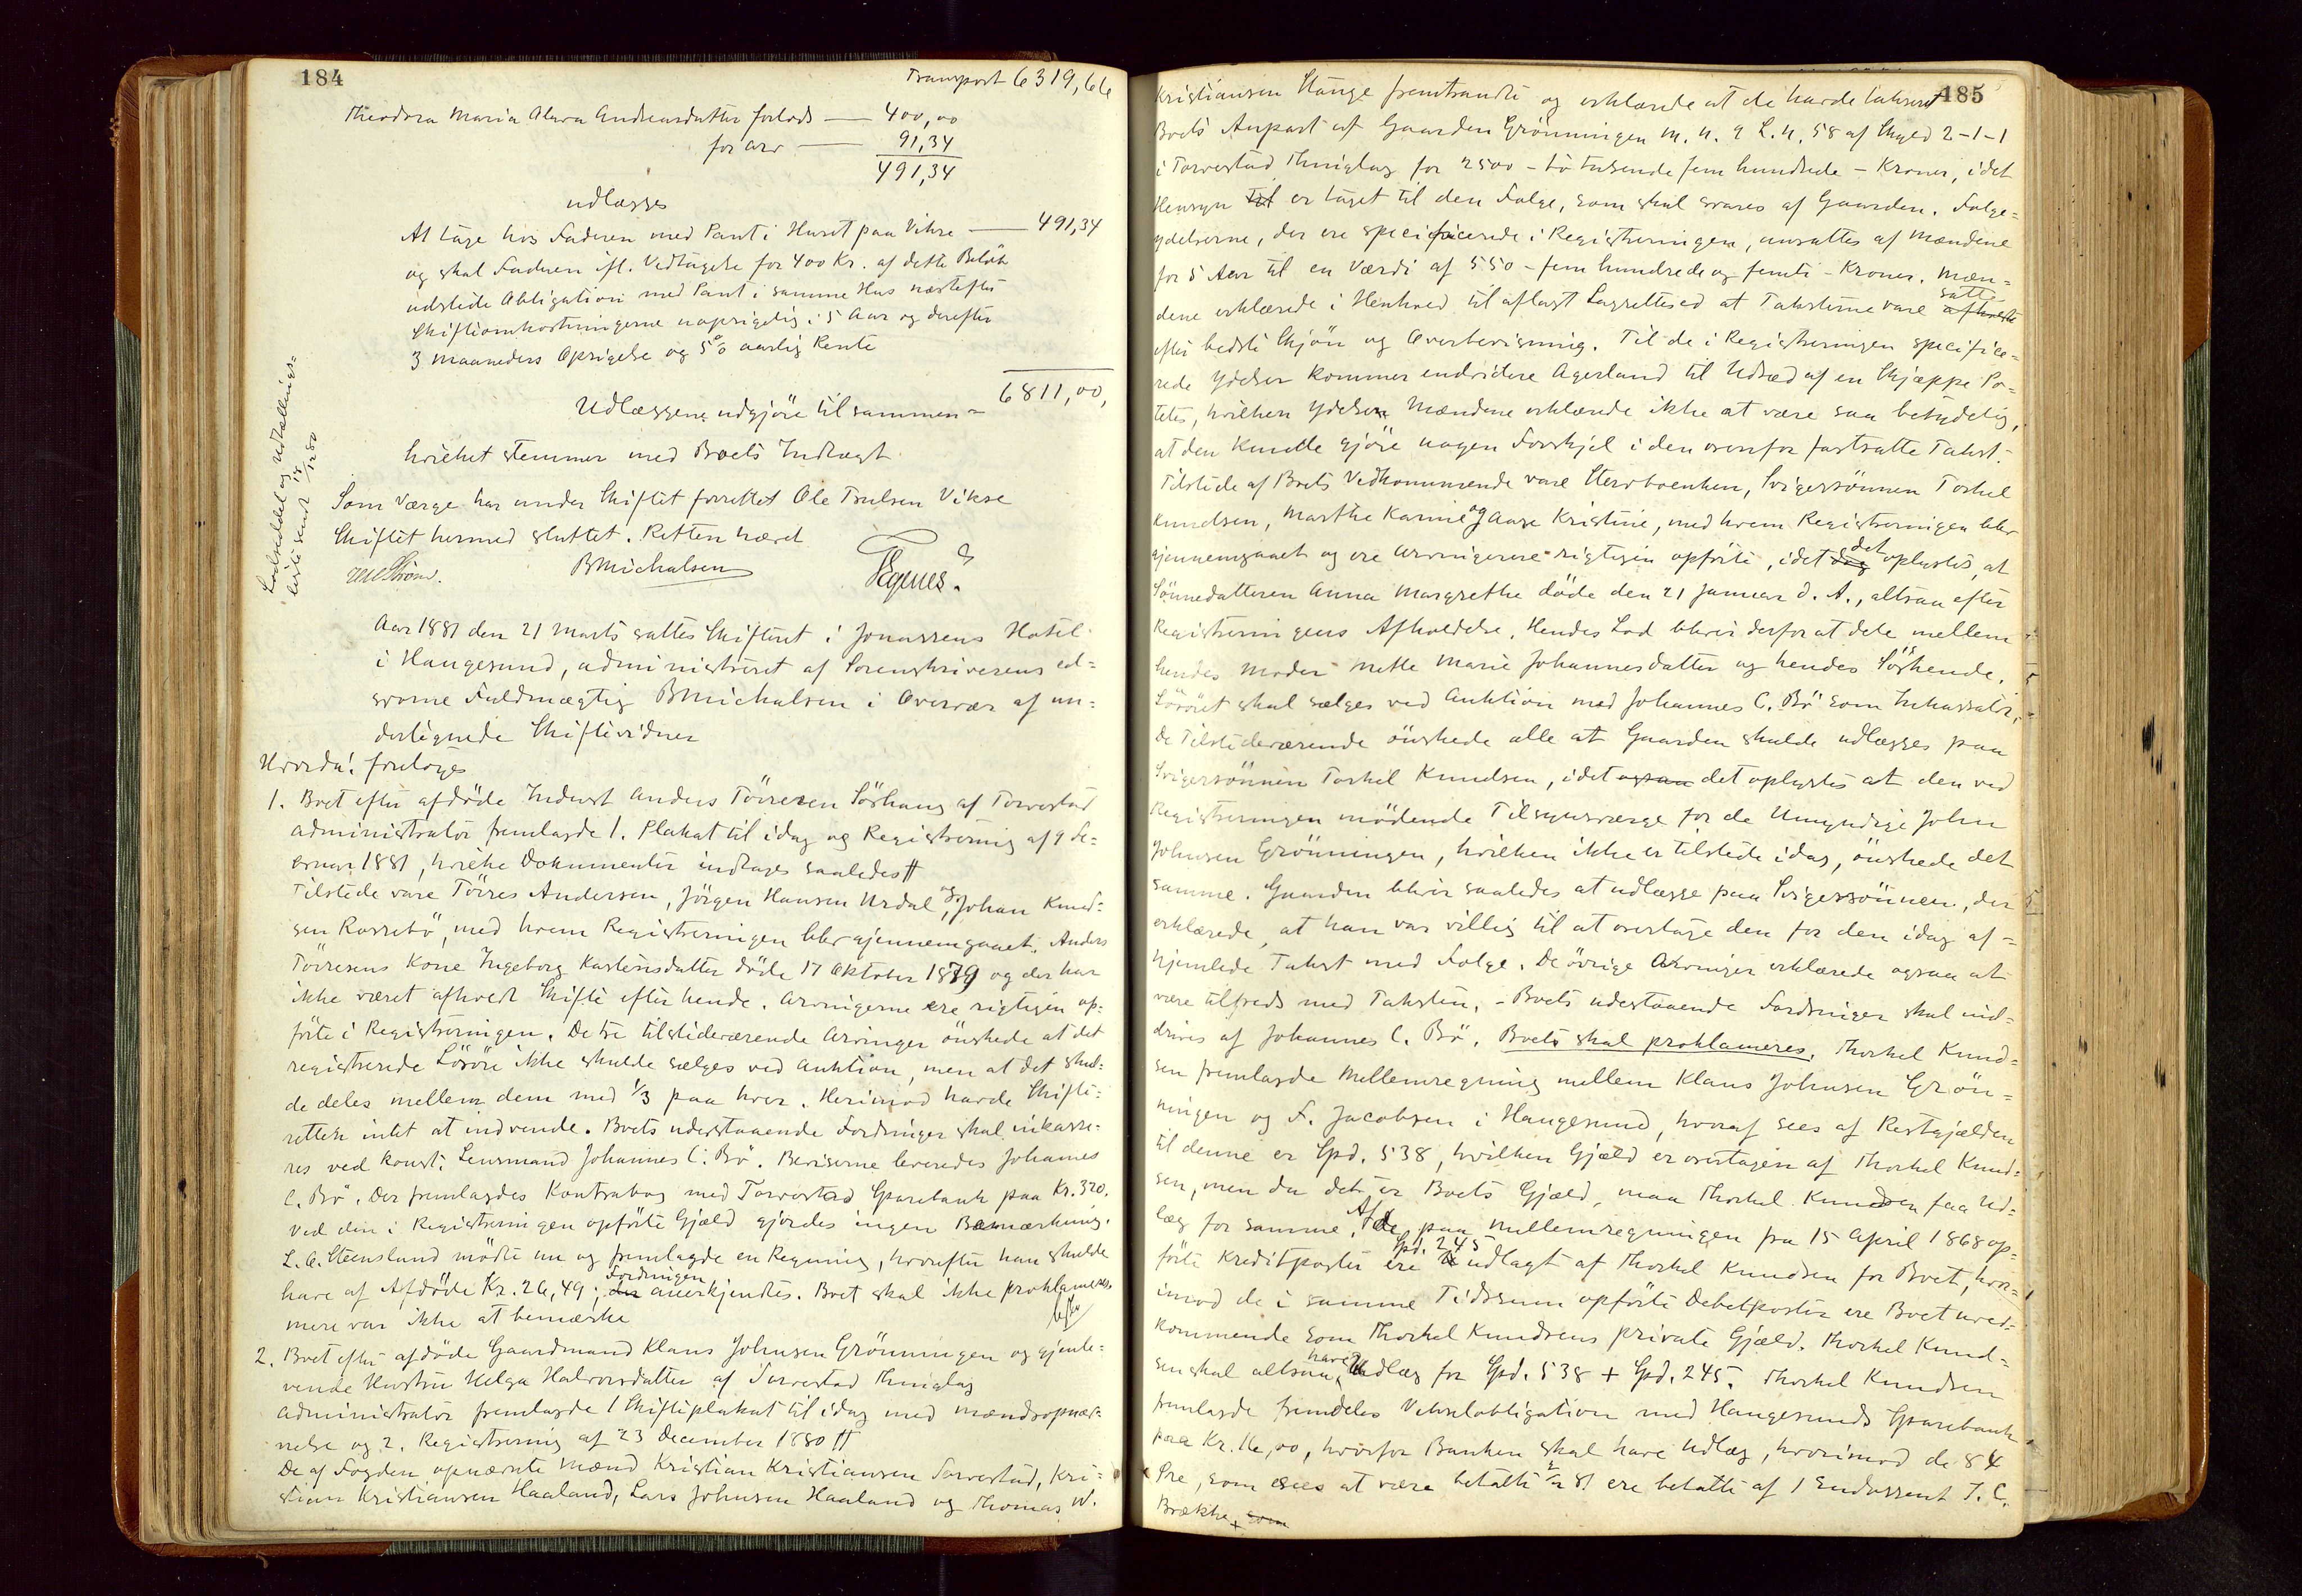 184
Transport 6319,66
Theodora Maria Alvra Andreasdatter forlods — 400,00
for arv — 91,34
491,34
udlægges
At tage hos Faderen med Pant i Huset paa Vikse — 491,34
og skal Faderen ifl. Vedtagelse for 400 Kr. af dette Beløb
udstede Obligation med Pant i samme Hus næstefter
Skifteomkostningerne uopsigelig i 5 Aar og derefter
3 Maaneders Opsigelse og 5% aarlig Rente
Udlæggene udgjöre tilsammen = 6811,00,
hvilket stemmer med Boets Indtægt.
Lodseddel og Udtællings-
liste sendt 18/12 80
Som Værge har under Skiftet forrettet Ole Trulsen Vikse
Skiftet hermed sluttet. Retten hævet
BMichalsen
Aar 1881 den 21 Marts sattes Skifteret i Jonassens Hotel
i Haugesund, administreret af Sorenskriverens ed=
svorne Fuldmægtig BMichalsen i Overvær af un=
dertegnede Skiftevidner
Hvorda! foretoges
1. Boet efter afdöde Inderst Anders Törresen Sörhaug af Torvestad
Administrator fremlagde 1. Plakat til idag og Registrering af 9 Fe=
bruar 1881, hvilke Dokumenter indtages saaledes #
Tilstede vare Törres Andersen, Jörgen Hansen Urdal, og Johan Knud=
sen Rossebö, med hvem Registreringen blev gjennemgaaet. Anders
Törresens Kone Ingeborg Karstensdatter döde 17 Oktober 1879 og der har
ikke været afholdt Skifte efter hende. Arvingerne ere rigtigen op=
förte i Registreringen. De tre tilstedeværende Arvinger önskede at det
registrerede Lösöre ikke skulde sælges ved Auktion, men at det skul=
de deles mellem dem med 1/3 paa hver. Herimod havde Skifte=
retten intet at indvende. Boets udestaaende Fordringer skal inkasse=
res ved konst. Lensmand Johannes C. Bö. Beviserne leveredes Johannes
C. Bö. Der fremlagdes Kontrabog med Torvestad Sparebank paa Kr. 320.
Ved den i Registreringen opförte Gjæld gjordes ingen Bemærkning.
L. A. Steensland mödte nu og fremlagde en Regning, hvorefter han skulde
have af Afdöde Kr. 26,49; der Fordringen anerkjendtes. Boet skal ikke proklameres
mere var ikke at bemærke
2. Boet efter afdöde Gaardmand Klaus Johnsen Grönningen og gjenle=
vende Hustru Helga Halvorsdatter af Torvestad Thinglag
Administrator fremlagde 1 Skifteplakat til idag med Mændsopnæv=
nelse og 2. Registrering af 23 December 1880 #
De af Fogden opnævnte Mænd Kristian Kristiansen Torvestad, Kri=
stian Kristiansen Haaland, Lars Johnsen Haaland og Thomas W.
185
Kristiansen Stange fremtraadte og erklærede at de havde takseret
Boets Anpart af Gaarden Grönningen M. n. 9 L. n. 58 af Skyld 2-1-1
i Torvestad Thinglag for 2500 - to tusende fem hundrede - Kroner, idet
Hensyn til er taget til den Folge, som skal svares af Gaarden. Folge=
ydelserne, der ere specificerede i Registreringen, ansattes af Mændene
for 5 Aar til en Værdi af 550 - fem hundrede og femti - Kroner. Mæn=
dene erklærede i Henhold til aflagt Lagrettesed at Taksterne vare satte
efter bedste Skjön og Overbevisning. Til de i Registreringen specifice=
rede Ydelser kommer endvidere Agerland til Udsæd af en Skjæppe Po=
tetes, hvilken Ydelse Mændene erklærede ikke at være saa betydelig,
at den kunde gjöre nogen Forskjel i den ovenfor fastsatte Takst.
Tilstede af Boets Vedkommende vare Stervboenken, Svigersönnen Torkel
Knudsen, Marthe Karine og Aase Kristine, med hvem Registreringen blev
gjennemgaaet og ere Arvingerne rigtigen opförte, idet det oplystes, at
Sönnedatteren Anna Margrethe döde den 21 Januar d. A., altsaa efter
Registreringens Afholdelse. Hendes Lod bliver derfor at dele mellem
hendes Moder Mette Marie Johannesdatter og hendes Söskende.
Lösöret skal sælges ved Auktion med Johannes C. Bö som Inkassator.
De Tilstedeværende önskede alle at Gaarden skulde udlægges paa
Svigersönnen Torkel Knudsen, idet ogsaa det oplystes at den ved
Registreringen mödende Tilsynsværge for de Umyndige John
Johnsen Grönningen, hvilken ikke er tilstede idag, önskede det
samme. Gaarden bliver saaledes at udlægge paa Svigersönnen, der
erklærede, at han var villig til at overtage den for den idag af=
hjemlede Takst med Folge. De övrige Arvinger erklærede ogsaa at
være tilfreds med Taksten. - Boets udestaaende Fordringer skal ind=
drives af Johannes C. Bö. Boet skal proklameres. Thorkel Knud=
sen fremlagde Mellemregning mellem Klaus Johnsen Grön=
ningen og F. Jacobsen i Haugesund, hvoraf sees af Restgjælden
til denne er Spd. 538, hvilken Gjæld er overtagen af Thorkel Knud=
sen, men da det er Boets Gjæld, maa Thorkel Knudsen faa Ud=
læg for samme. Af de paa Mellemregningen fra 15 April 1868 op=
förte Kreditposter ere Spd. 245 udlagt af Thorkel Knudsen for Boet, hvor=
imod de i samme Tidsrum opförte Debetposter ere Boet uved=
kommende som Thorkel Knudsens private Gjæld. Thorkel Knud=
sen skal altsaa have Udlæg for Spd. 538 + Spd. 245. Thorkel Knudsen
fremlagde fremdeles Vekselobligation med Haugesunds Sparebank
paa Kr. 16,00, hvorfor Banken skal have Udlæg, hvorimod de 84
Öre, som sees at være betalte 81 ere betalte af 1 Endossent T. C.
Brække, som